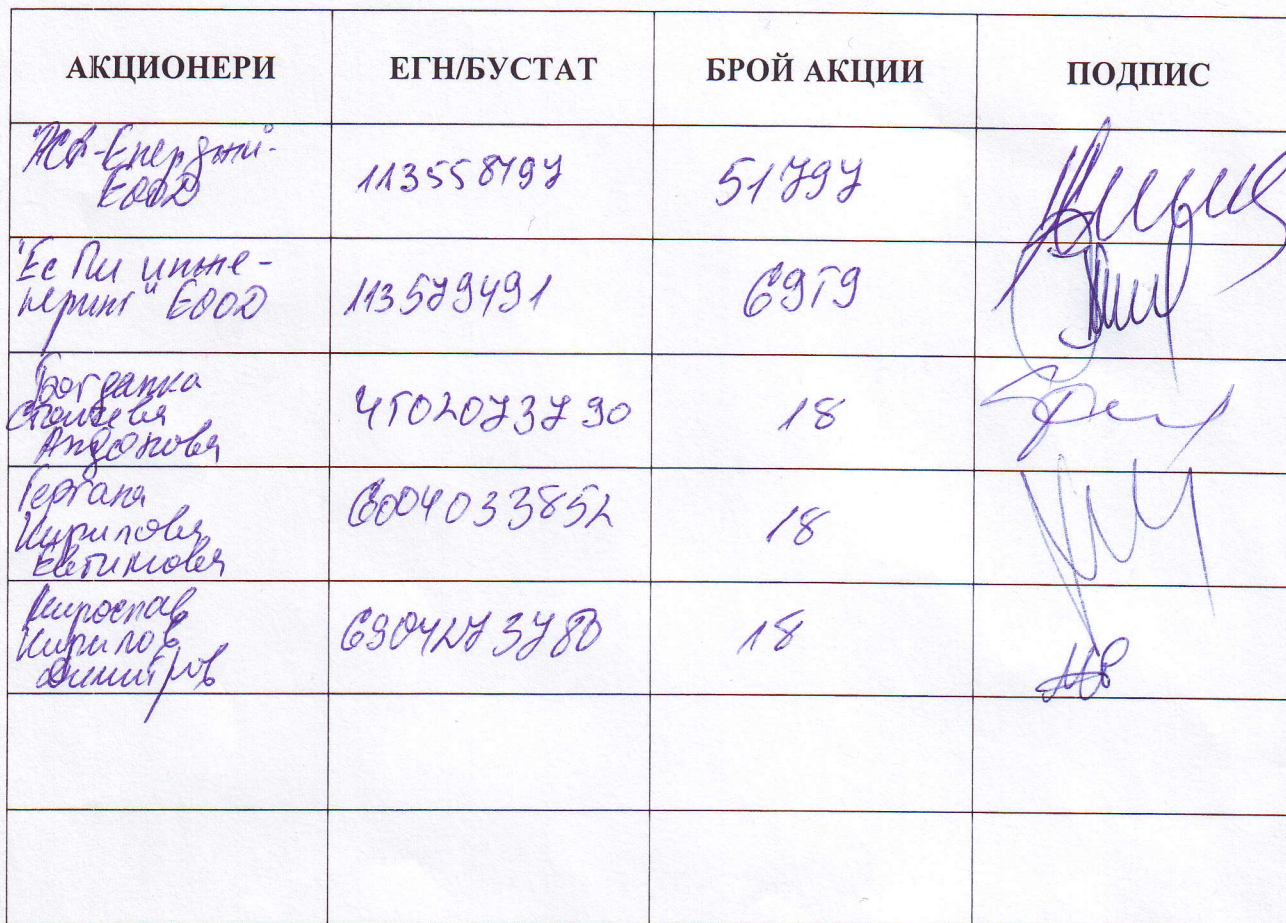 АКЦИОНЕРИ ЕГН/БУСТАТ БРОЙ АКЦИИ ПОДПИС
"АСВ-Енерджи"-
ЕООД 113558797 51797
"Ес Пи инже-
неринг" ЕООД 113579491 6959
Богданка
Стоичева
Андонова 4502073790 18
Гергана
Кирилова
Евтимова 6004033852 18
Мирослав
Кирилов
Димитров 6904273780 18